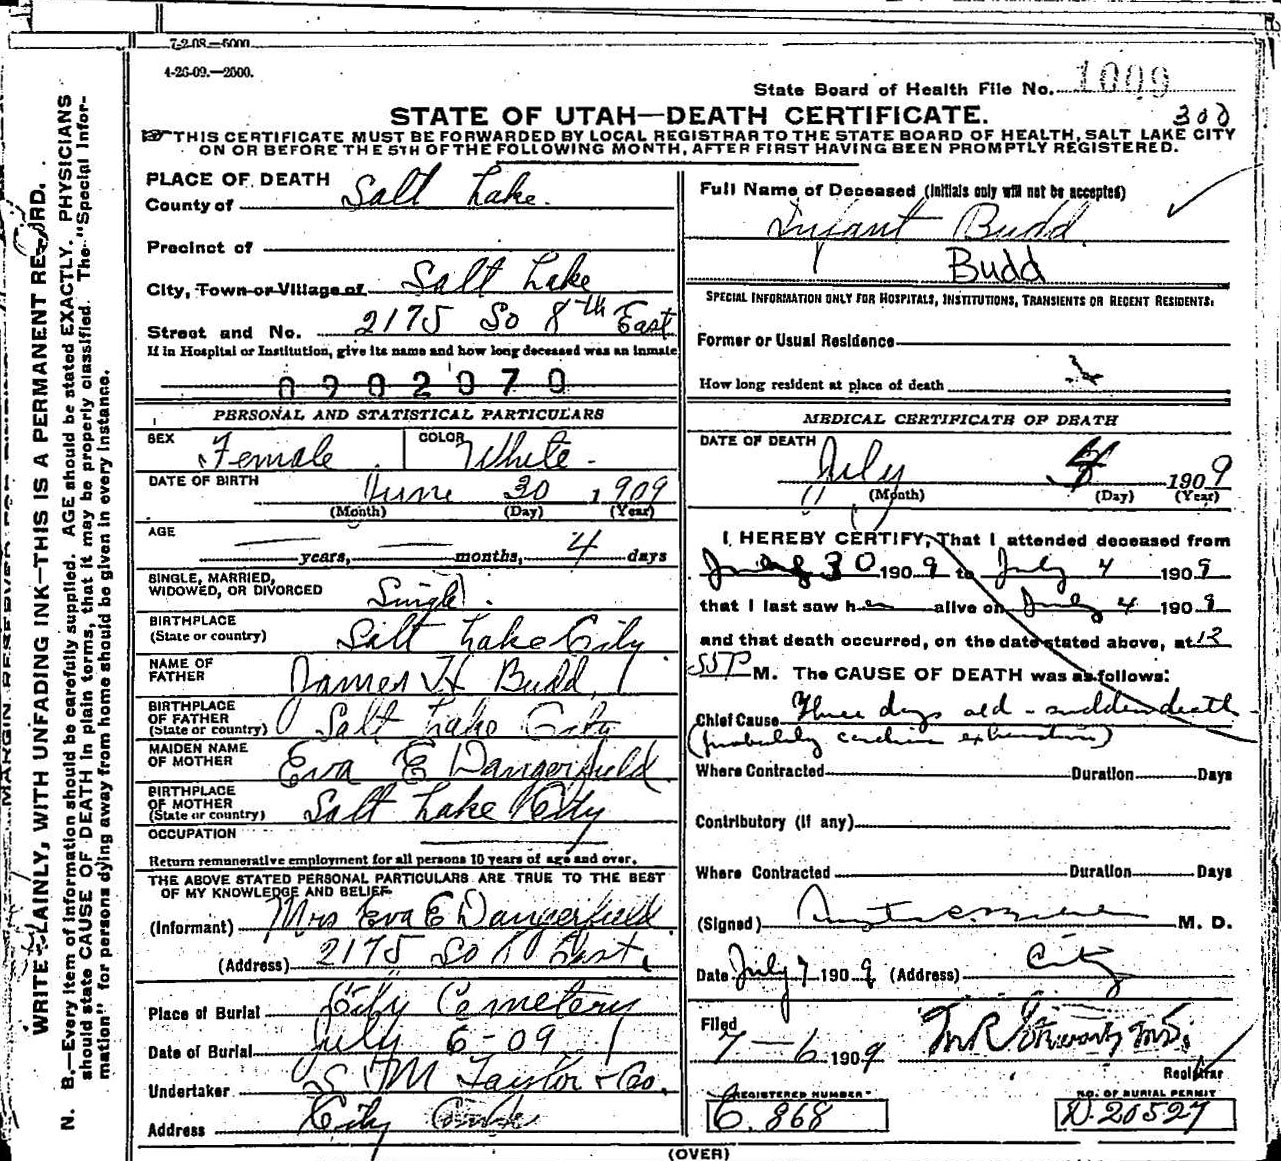 7-2-08—5000
4-26-09.—2500.
State Board of Health File No. 1009
STATE OF UTAH—DEATH CERTIFICATE. 300
THIS CERTIFICATE MUST BE FORWARDED BY LOCAL REGISTRAR TO THE STATE BOARD OF HEALTH, SALT LAKE CITY
ON OR BEFORE THE 5TH OF THE FOLLOWING MONTH, AFTER FIRST HAVING BEEN PROMPTLY REGISTERED.
MARGIN RESERVED FOR
WRITE PLAINLY, WITH UNFADING INK—THIS IS A PERMANENT RECORD.
N. B.—Every item of information should be carefully supplied. AGE should be stated EXACTLY. PHYSICIANS
should state CAUSE OF DEATH in plain terms, that it may be properly classified. The "Special Infor-
mation" for persons dying away from home should be given in every instance.
PLACE OF DEATH
County of Salt Lake.
Precinct of
City, Town or Village of Salt Lake
Street and No. 2175 So 8th East
If in Hospital or Institution, give its name and how long deceased was an inmate
0902070
PERSONAL AND STATISTICAL PARTICULARS
SEX Female COLOR White.
DATE OF BIRTH June 30 1909
(Month) (Day) (Year)
AGE
— years, — months, 4 days
SINGLE, MARRIED,
WIDOWED, OR DIVORCED Single.
BIRTHPLACE
(State or country) Salt Lake City
NAME OF
FATHER James H Budd
BIRTHPLACE
OF FATHER
(State or country) Salt Lake City
MAIDEN NAME
OF MOTHER Eva E Dangerfield
BIRTHPLACE
OF MOTHER
(State or country) Salt Lake City
OCCUPATION
Return remunerative employment for all persons 10 years of age and over.
THE ABOVE STATED PERSONAL PARTICULARS ARE TRUE TO THE BEST
OF MY KNOWLEDGE AND BELIEF
(Informant) Mrs Eva E Dangerfield
(Address) 2175 So East.
Place of Burial City Cemetery
Date of Burial July 6-09
Undertaker S M Taylor & Co.
Address City
Full Name of Deceased (Initials only will not be accepted)
Infant Budd
Budd
SPECIAL INFORMATION ONLY FOR HOSPITALS, INSTITUTIONS, TRANSIENTS OR RECENT RESIDENTS:
Former or Usual Residence
How long resident at place of death
MEDICAL CERTIFICATE OF DEATH
DATE OF DEATH July 4 1909
(Month) (Day) (Year)
I HEREBY CERTIFY, That I attended deceased from
30 1909 to July 4 1909
that I last saw her alive on July 4 1909
and that death occurred, on the date stated above, at 12
55P M. The CAUSE OF DEATH was as follows:
Chief Cause Three days old - sudden death -
(probably cardiac exhaustion)
Where Contracted Duration Days
Contributory (if any)
Where Contracted Duration Days
(Signed) M. D.
Date July 7 1909 (Address) City
Filed
7-6 1909 M.D.
Registrar
REGISTERED NUMBER NO. OF BURIAL PERMIT
C. 868 D. 20527
(OVER)